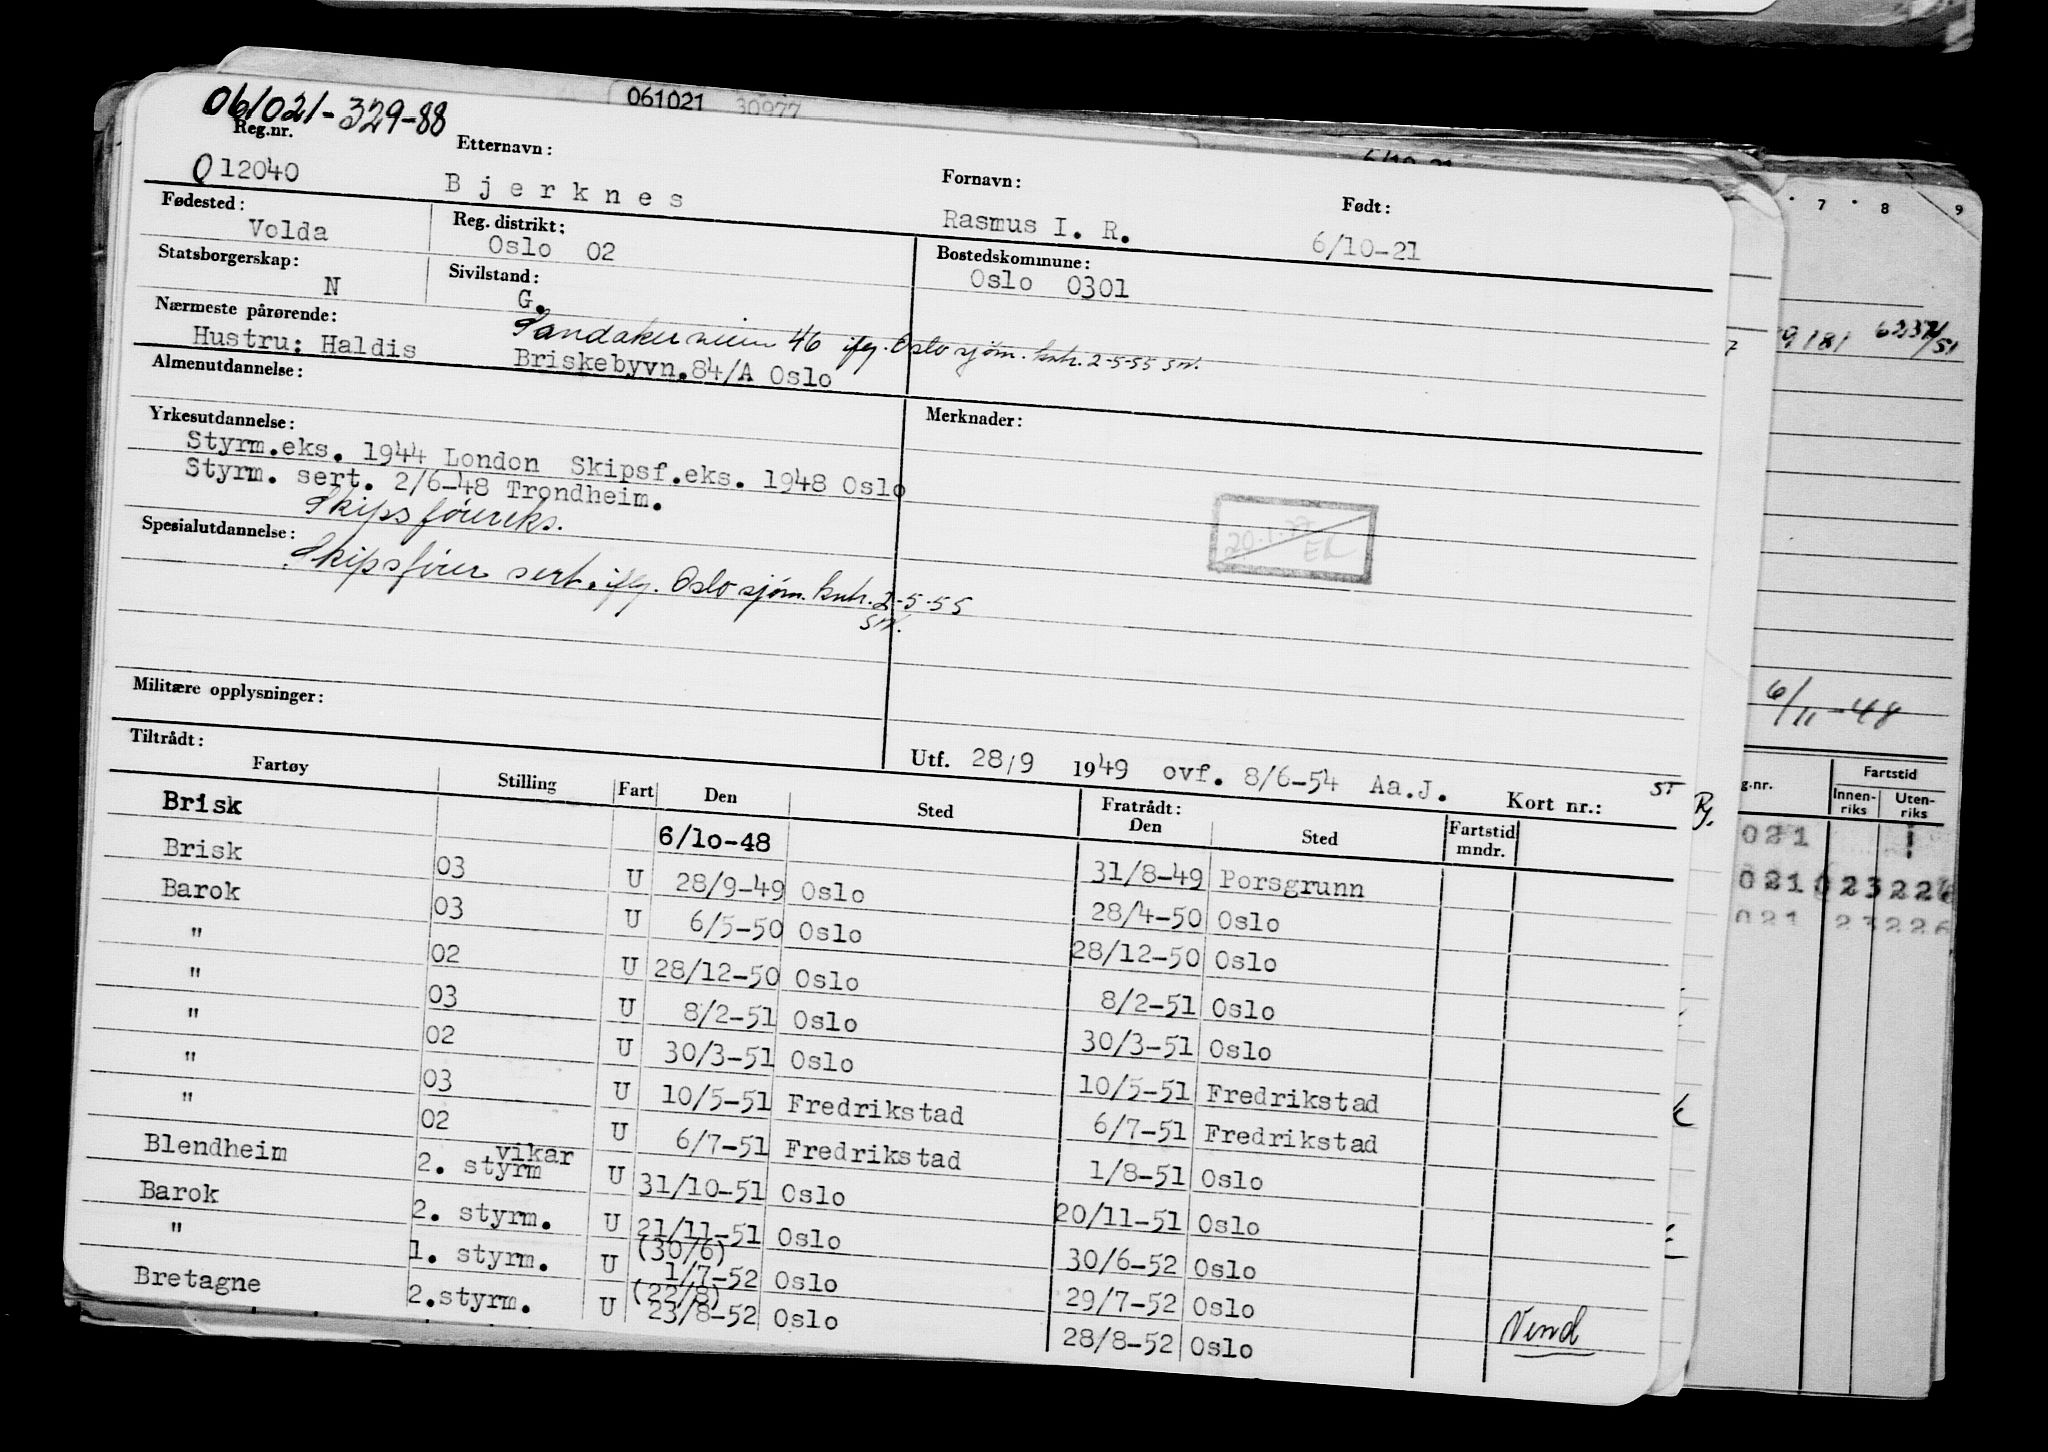 061021 30977
061021-329-88
Reg.nr. Etternavn: Fornavn: Født:
Q12040 Bjerknes Rasmus I. R. 6/10-21
Fødested: Reg. distrikt: Bostedskommune:
Volda Oslo 02 Oslo 0301
Statsborgerskap: Sivilstand:
N G.
Nærmeste pårørende: Sandakerveien 46 ifg. Oslo sjøm. kntr. 2-5-55 SW.
Hustru: Haldis Briskebyvn.84/A Oslo
Almenutdannelse:
Yrkesutdannelse: Merknader:
Styrm.eks. 1944 London Skipsf.eks. 1948 Oslo
Styrm. sert. 2/6-48 Trondheim.
Skipsføereks.
Spesialutdannelse:
Skipsfører sert. ifg. Oslo sjøm. kntr. 2-5-55
SW.
Militære opplysninger:
Utf. 28/9 1949 ovf. 8/6-54 Aa.J. Kort nr.: ST
Tiltrådt: Fratrådt:
Fartøy Stilling Fart Den Sted Den Sted Fartstid mndr.
Brisk 6/10-48 31/8-49 Porsgrunn
Brisk 03 U 28/9-49 Oslo 28/4-50 Oslo
Barok 03 U 6/5-50 Oslo 28/12-50 Oslo
" 02 U 28/12-50 Oslo 8/2-51 Oslo
" 03 U 8/2-51 Oslo 30/3-51 Oslo
" 02 U 30/3-51 Oslo 10/5-51 Fredrikstad
" 03 U 10/5-51 Fredrikstad 6/7-51 Fredrikstad
" 02 U 6/7-51 Fredrikstad 1/8-51 Oslo
Blendheim vikar 2. styrm U 31/10-51 Oslo 20/11-51 Oslo
Barok 2. styrm. U 21/11-51 Oslo 30/6-52 Oslo
" 1. styrm. U (30/6) 1/7-52 Oslo 29/7-52 Oslo
Bretagne 2.styrm. U (22/8) 23/8-52 Oslo 28/8-52 Oslo
Vend
6/10-21
7 8 9
6/11-48
g.nr. Fartstid
Innenriks Utenriks
021
021 023226
021 23226